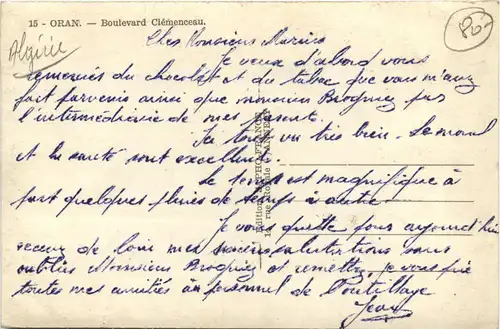 15 - ORAN. - Boulevard Clémenceau.
Algérie
Cher Monsieur
Je veux d'abord vous
remerciés du chocolat et du tabac que vous m'avez
fait parvenir ainsi que monsieur par
l'intermédiaire de mes parents.
Ici tout va très bien. Le moral
et la santé sont excellents.
Le temps est magnifique à
part quelques pluies de temps à autre
Je vous quitte pour aujourd'hui
recevez de loin mes salutations sans
oublier Monsieur et remettez, je vous prie
toutes mes amitiés au personnel de l'outillage
Jean
Edition PHOTO-AFRICAINES
rue ALGER